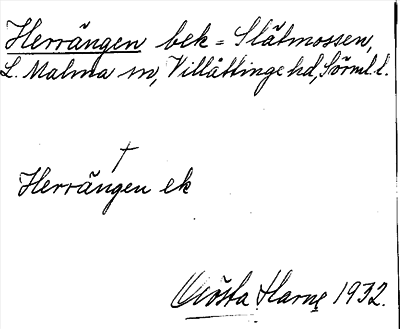 Herrängen bek = Slätmossen,
L. Malma sn, Villåttinge hd, Sörml. l.
Herrängen ek
Gösta Harne 1932.